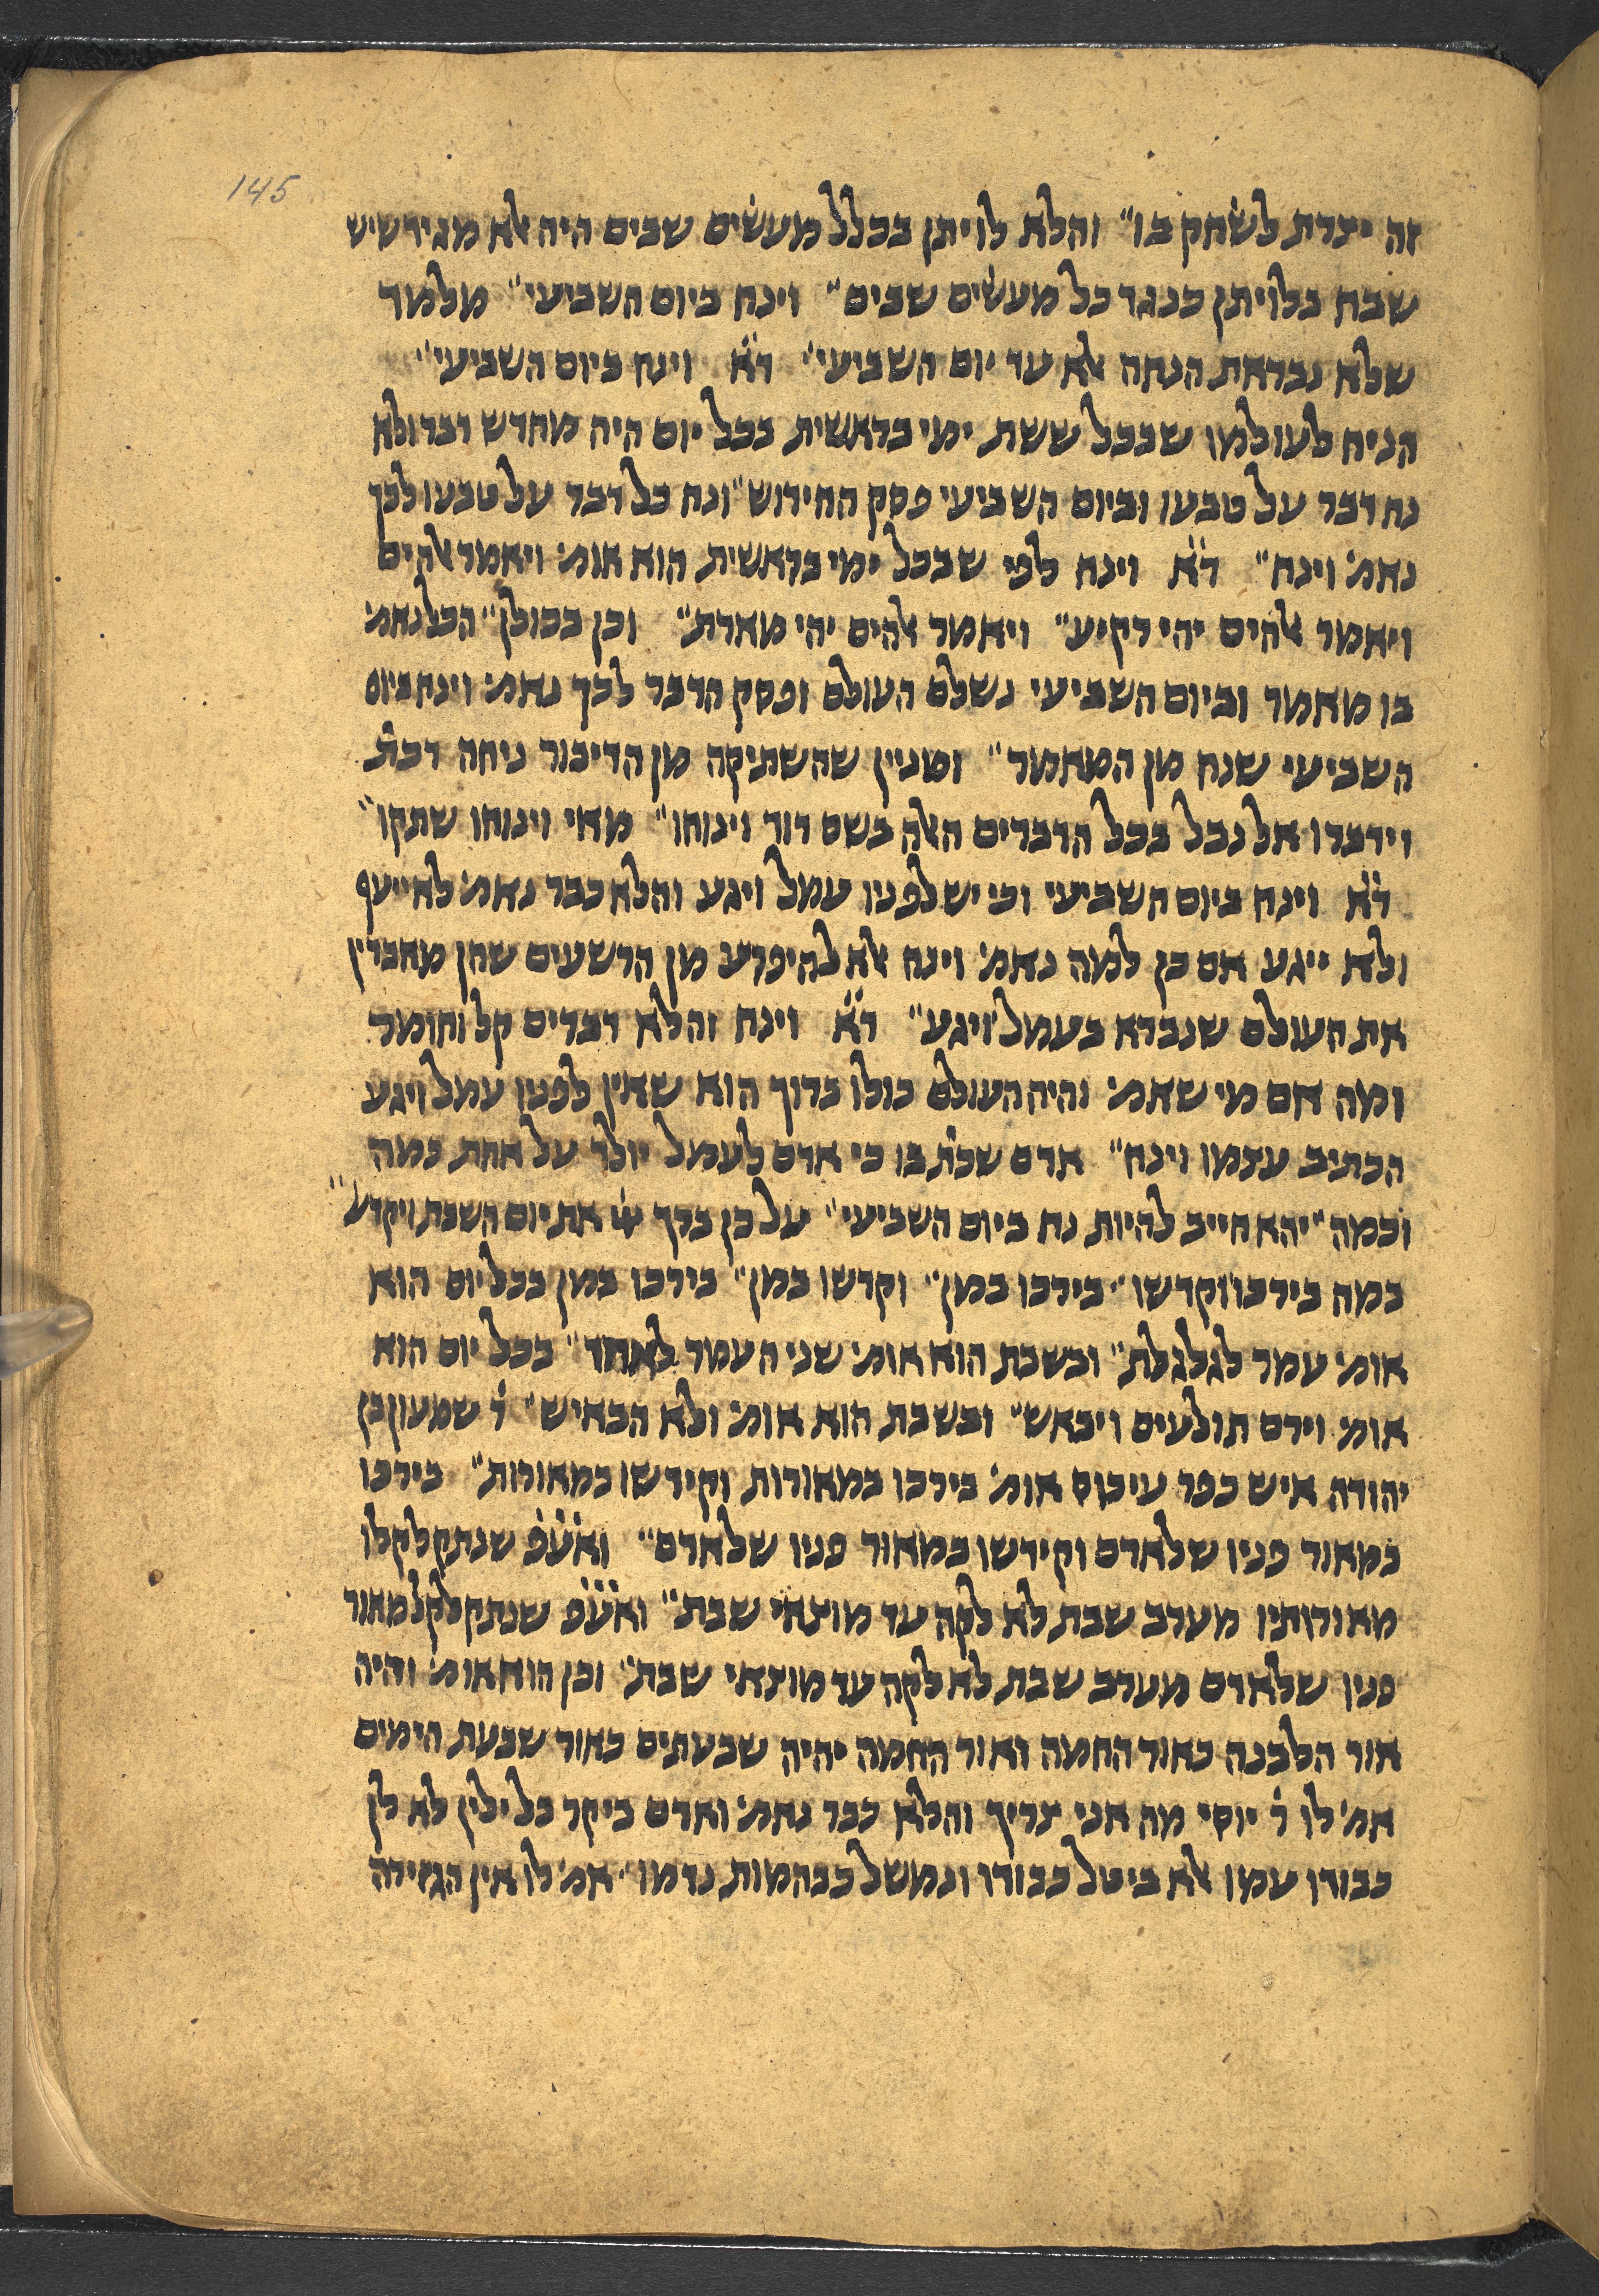 145
זה יצרת לשחק בו״ והלא לויתן בכלל מעשים שבים היה אלא מגיד שיש
שבח בלויתן כנגד כל מעשים שבים״ וינח ביום השביעי״ מלמד
שלא נבראת הנחה אלא עד יום השביעי״ ד״א וינח ביום השביעי״
הניח לעולמו שבכל ששת ימי בראשית בכל יום היה מחדש דבר ולא
נח דבר על טבעו וביום השביעי פסק החידוש״ ונח כל דבר על טבעו לכך
נאמ׳ וינח״ ד״א וינח לפי שבכל ימי בראשית הוא אומ׳ ויאמר אלהים
ויאמר אלהים יהי רקיע״ ויאמר אלהים יהי מארת״ וכן בכולן״ הכל נאמ׳
בו מאמר וביום השביעי נשלם העולם ופסק הדבר לכך נאמ׳ וינח ביום
השביעי שנח מן המאמר״ ומנין שהשתיקה מן הדיבור ניחה דכת׳
וידברו אל נבל בכל הדברים האלה בשם דוד וינוחו״ מאי וינוחו שתקו״
ד״א וינח ביום השביעי וכי יש לפניו עמל ויגע והלא כבר נאמ׳ לא ייעף
ולא ייגע אם כן למה נאמ׳ וינח אלא להיפרע מן הרשעים שהן מאבדין
את העולם שנברא בעמל ויגע״ ד״א וינח והלא דברים קל וחומר
ומה אם מי שאמ׳ והיה העולם כולו ברוך הוא שאין לפניו עמל ויגע
הכתיב עצמו וינח״ אדם שכת׳ בו כי אדם לעמל יולד על אחת כמה
וכמה״ יהא חייב להיות נח ביום השביעי״ על כן ברך יי׳ את יום השבת ויקדש׳״
במה בירכו וקדשו״ בירכו במן״ וקדשו במן״ בירכו במן בכל יום הוא
אומ׳ עמר לגלגלת״ ובשבת הוא אומ׳ שני העמר לאחד״ בכל יום הוא
אומ׳ וירם תולעים ויבאש״ ובשבת הוא אומ׳ ולא הבאיש״ ר׳ שמעון בן
יהודה איש כפר עיכוס אומ׳ בירכו במאורות וקידשו במאורות״ בירכו
במאור פניו שלאדם וקידשו במאור פניו שלאדם״ ואע״פ שנתקלקלו
מאורותיו מערב שבת לא לקה עד מוצאי שבת״ ואע״פ שנתקלקל מאור
פניו שלאדם מערב שבת לא לקה עד מוצאי שבת״ וכן הוא אומ׳ והיה
אור הלבנה כאור החמה ואור החמה יהיה שבעתים כאור שבעת הימים
אמ׳ לו ר׳ יוסי מה אני צריך והלא כבר נאמ׳ ואדם ביקר בל ילין לא לן
כבודו עמו אלא ביטל כבודו ונמשל כבהמות נדמו״ אמ׳ לו אין הגזירה